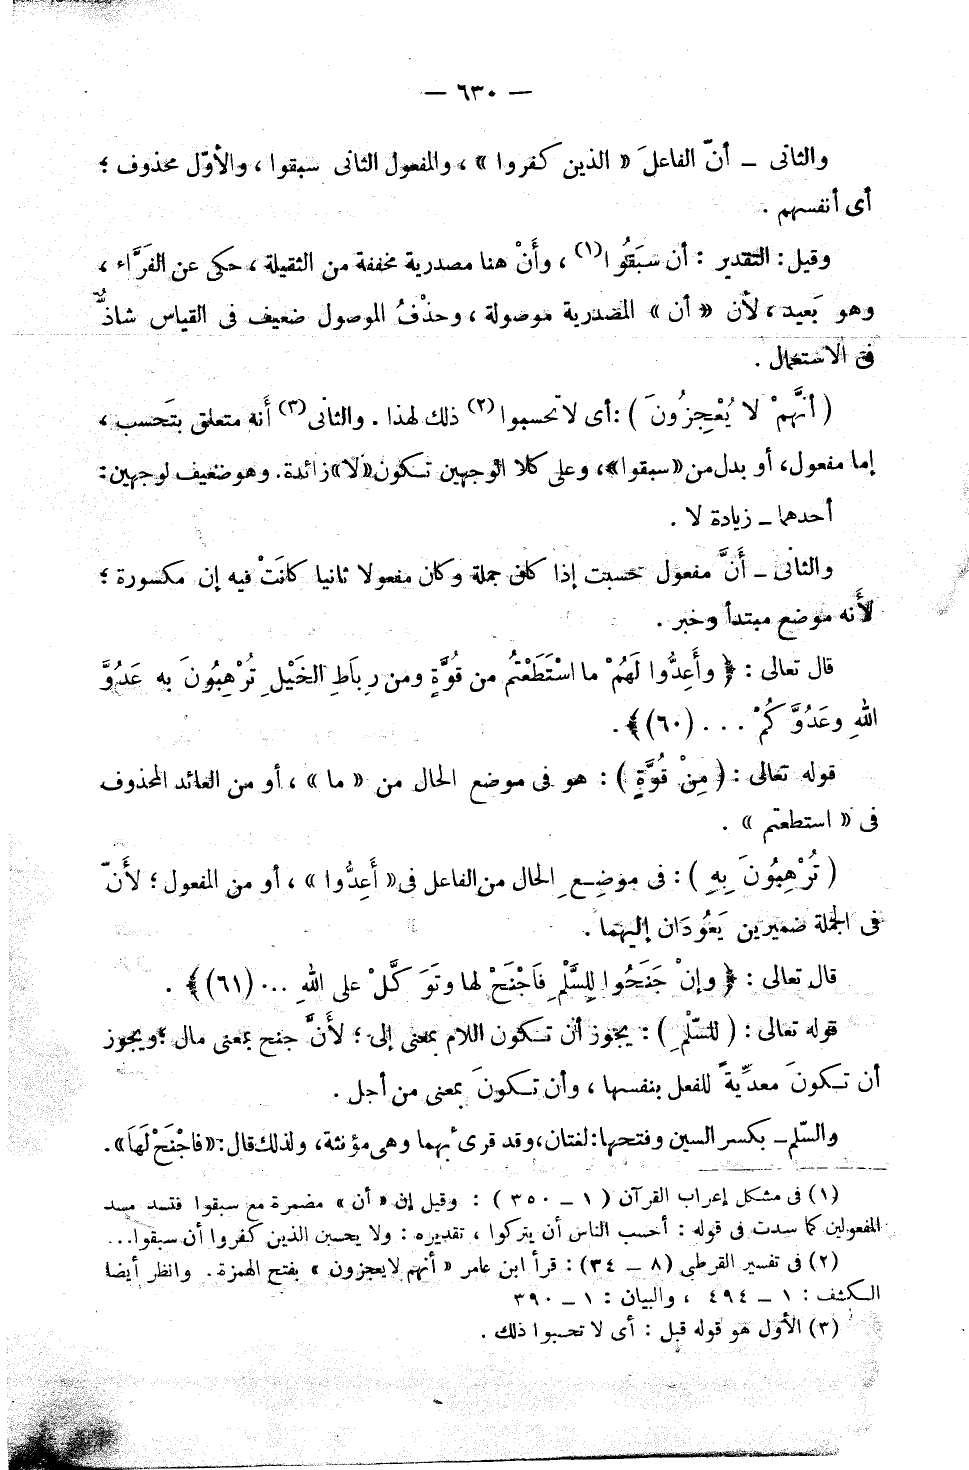 — ٦٣٠ —
والثانى – أنّ الفاعلَ « الذين كفروا » ، والمفعول الثانى سبقوا ، والأوّل محذوف ؛
أى أنفسهم .
وقيل : التقدير : أن سَبَقُوا(١) ، وأَنْ هنا مصدرية مخففة من الثقيلة ، حكى عن الفَرَّاء ،
وهو بَعيد ، لأن « أن » المصدرية موصولة ، وحذْفُ الموصول ضعيف فى القياس شاذٌّ
فى الاستعمال .
( أنَّهمْ لا يُعْجِزُونَ ) : أى لا تحسبوا (٢) ذلك لهذا . والثانى (٣) أَنه متعلق بتَحسب ،
إما مفعول، أو بدل من «سبقوا»، وعلى كلا الوجهين تكون «لا» زائدة. وهو ضعيف لوجهين :
أحدهما – زيادة لا .
والثانى – أَنَّ مفعول حسبت إذا كان جملة وكان مفعولا ثانيا كانَتْ فيه إن مكسورة ؛
لأَنه موضع مبتدأ وخبر .
قال تعالى : ﴿ وأَعِدُّوا لَهُمْ ما اسْتَطَعْتُم من قُوَّةٍ ومن رِبَاطِ الخَيْلِ تُرْهِبُونَ به عَدُوَّ
اللهِ وعَدُوَّكُمْ . . . (٦٠)﴾ .
قوله تعالى : ( مِنْ قُوَّةٍ ) : هو فى موضع الحال من « ما » ، أو من العائد المحذوف
فى « استطعتم » .
( تُرْهِبُونَ بِهِ ) : فى موضِع الحال من الفاعل فى « أَعِدُّوا » ، أو من المفعول ؛ لأَنّ
فى الجملة ضميرين يَعُودَان إليهما .
قال تعالى : ﴿ وإنْ جَنَحُوا لِلسَّلْمِ فَاجْنَحْ لها وتَوَكَّلْ على اللهِ ... (٦١)﴾ .
قوله تعالى : ( للسّلْمِ ) : يجوز أن تكون اللام بمعنى إلى ؛ لأَنَّ جنح بمعنى مال ؛ ويجوز
أن تكونَ معدِّيةً للفعل بنفسها ، وأن تكونَ بمعنى من أجل .
والسّلم – بكسر السين وفتحها : لغتان، وقد قرىء بهما وهى مؤنثة، ولذلك قال : «فاجْنَحْ لَهَا» .
(١) فى مشكل إعراب القرآن ( ١ – ٣٥٠ ) : وقيل إن « أن » مضمرة مع سبقوا فتسد مسد
المفعولين كما سدت فى قوله : أحسب الناس أن يتركوا ، تقديره : ولا يحسبن الذين كفروا أن سبقوا...
(٢) فى تفسير القرطبى (٨ – ٣٤) : قرأ ابن عامر « أنهم لا يعجزون » بفتح الهمزة . وانظر أيضا
الكشف : ١ – ٤٩٤ ، والبيان : ١ – ٣٩٠
(٣) الأول هو قوله قبل : أى لا تحسبوا ذلك .